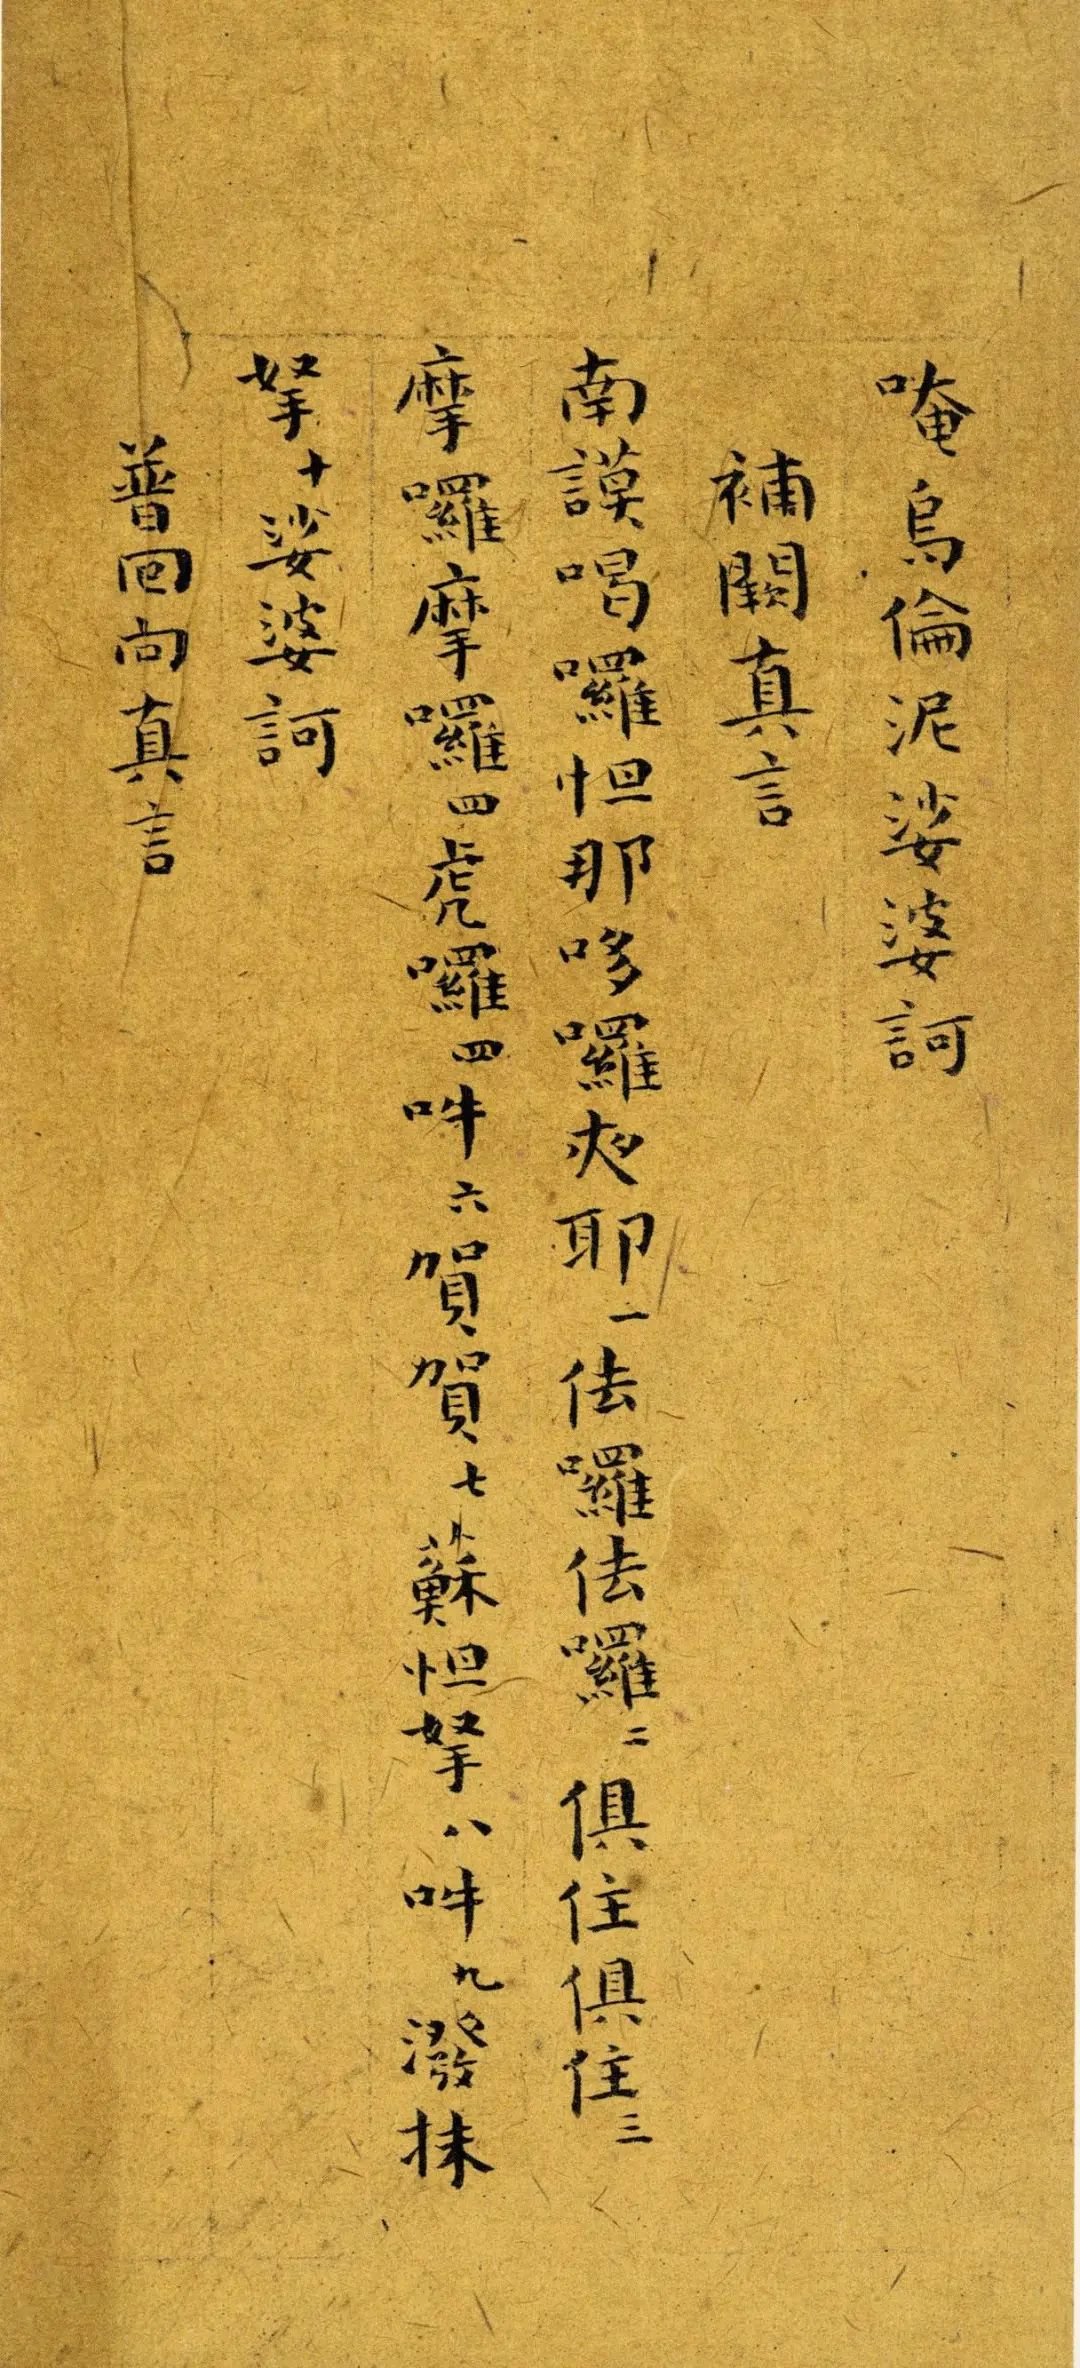 唵烏倫泥娑婆訶
補闕真言
南謨喝囉怛那哆囉夾耶一佉囉佉囉二俱住俱住三
摩囉摩囉四虎囉四吽六賀賀七蘇怛拏八吽九潑抹
拏十娑婆訶
普回向真言